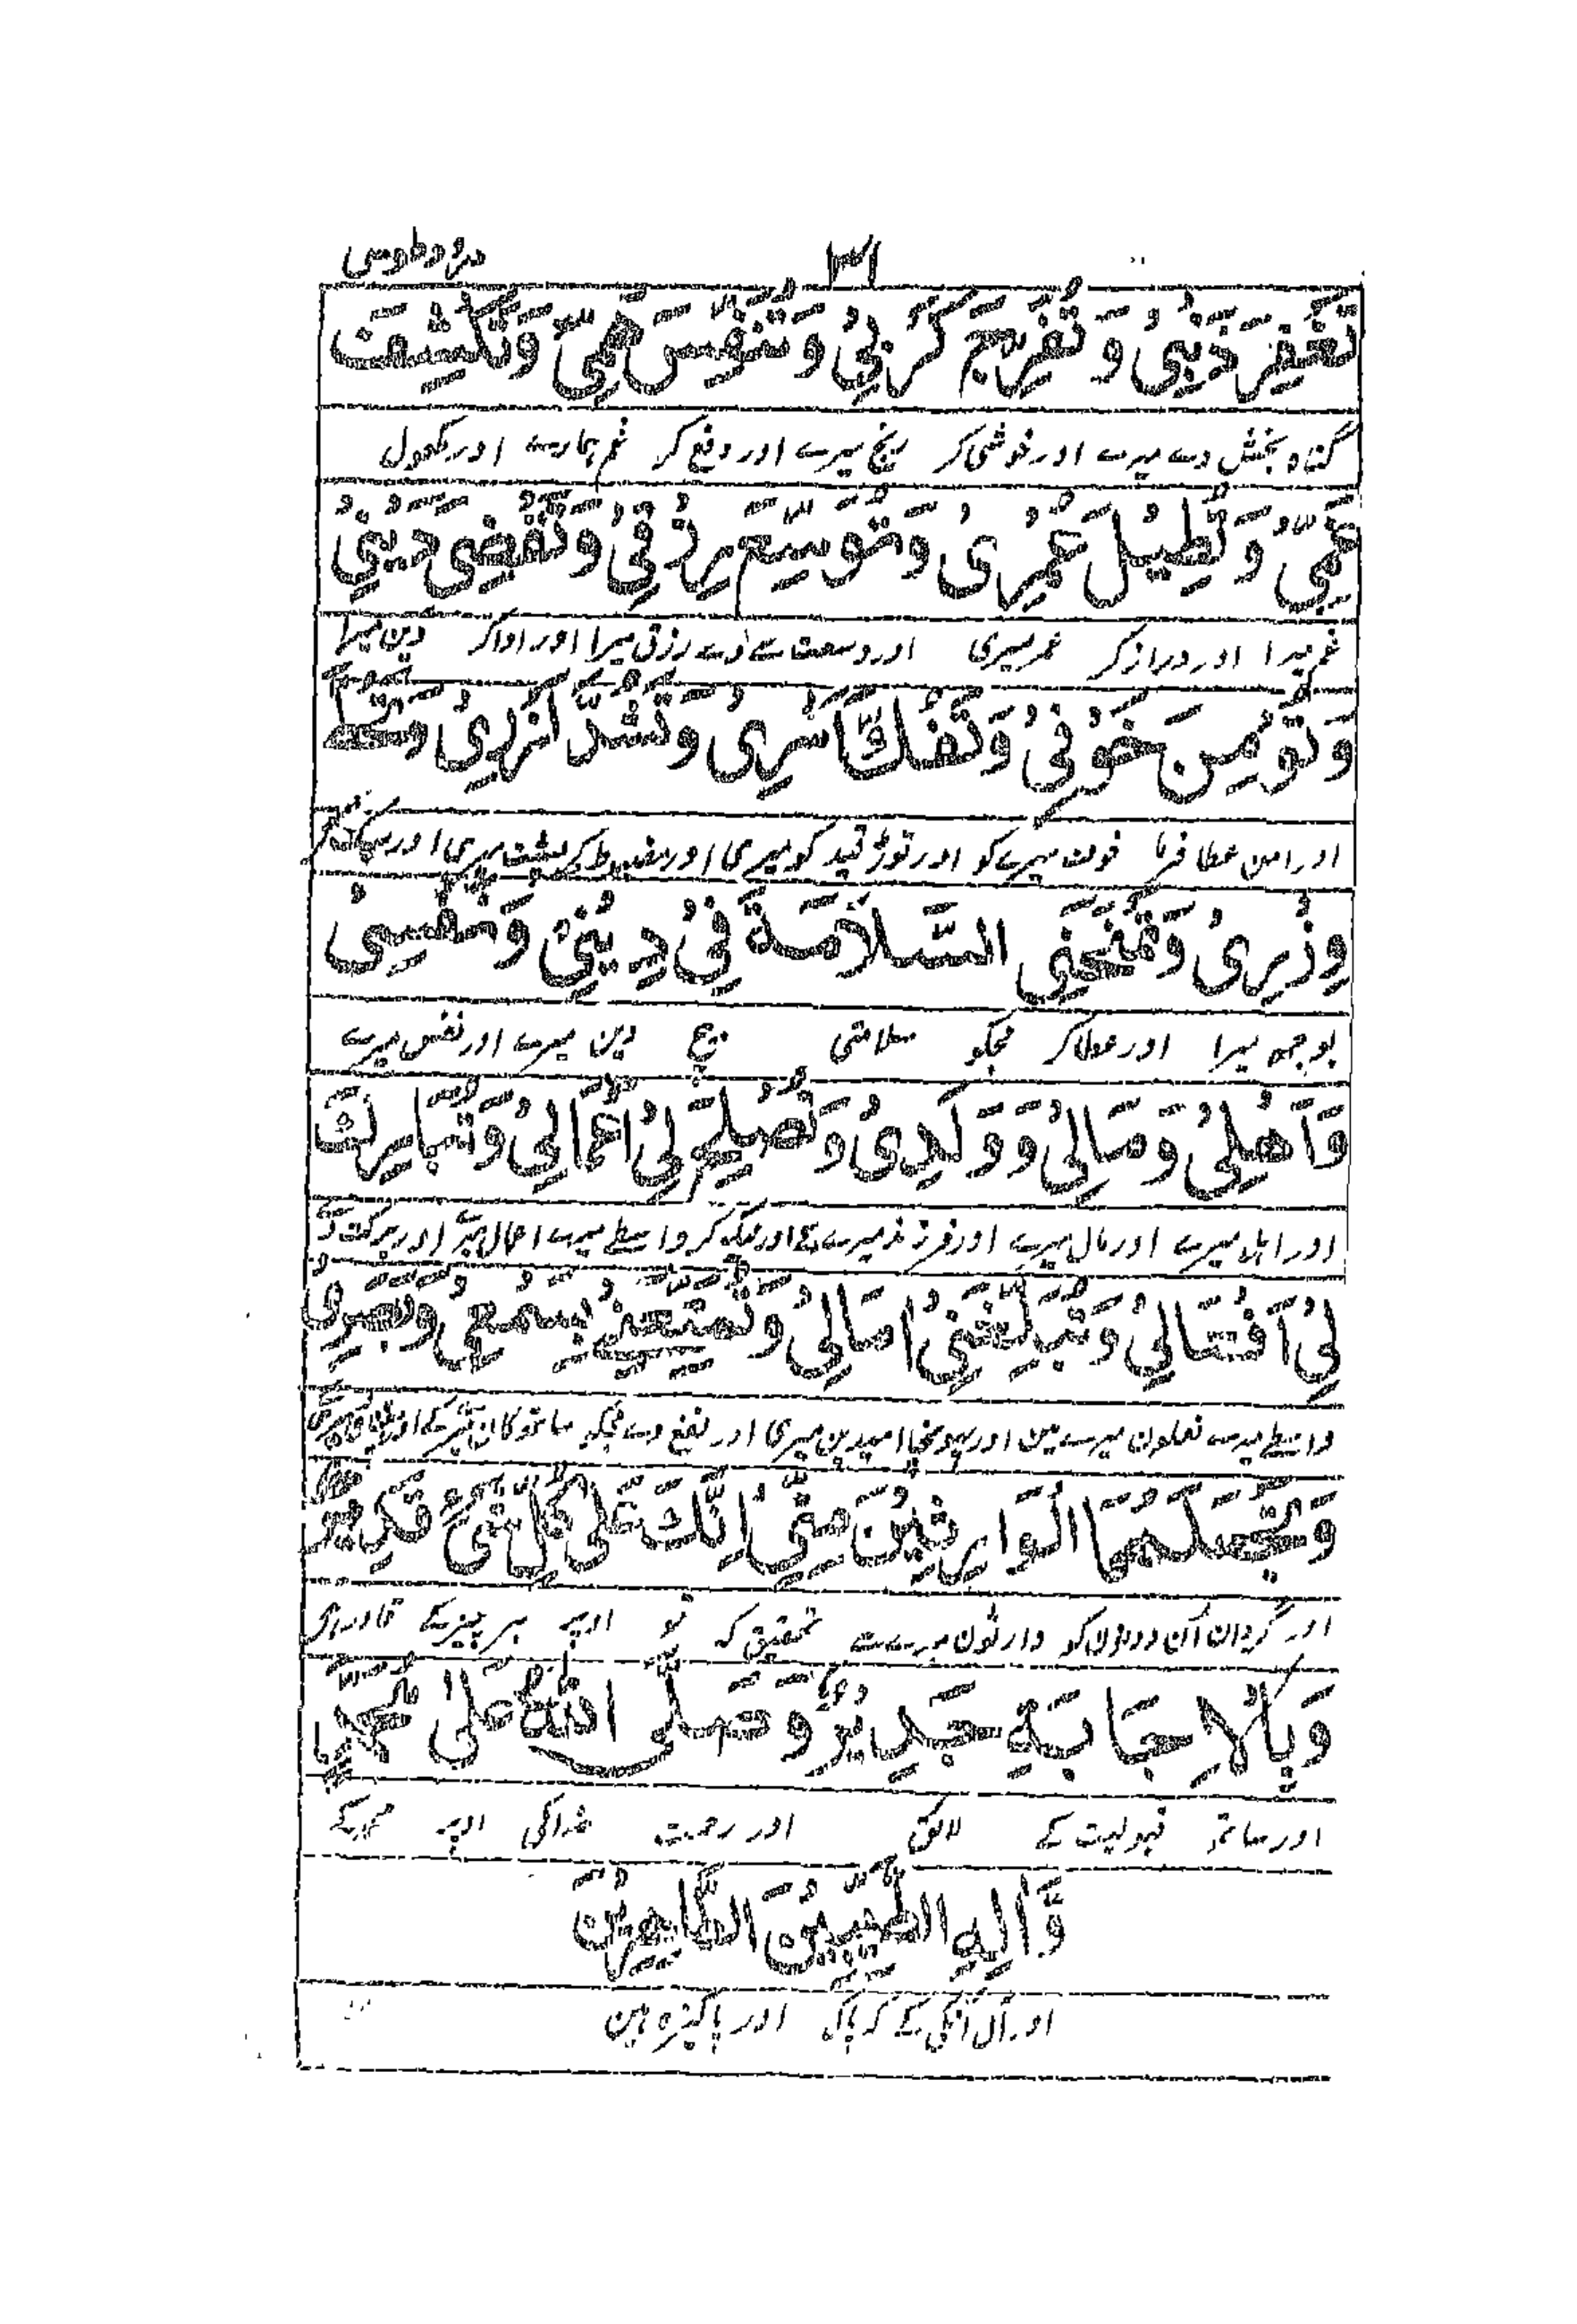 ۳۱
درود طوسی
تَغْفِرَ ذَنْبِىْ وَ تُفَرِّجَ كَرْبِىْ وَ تُنَفِّسَ هَمِّىْ وَ تَكْشِفَ
گناہ بخش دے میرے اور خوشی کر رنج میرے اور دفع کر غم ہمارے اور کھول
غَمِّىْ وَ تُطِيْلَ عُمْرِىْ وَ تُوَسِّعَ رِزْقِىْ وَ تَقْضِىَ دَيْنِىْ
غم میرا اور دراز کر عمر میری اور وسعت سے دے رزق میرا اور ادا کر دین میرا
وَ تُؤْمِنَ خَوْفِىْ وَ تَفُكَّ اَسْرِىْ وَ تَشُدَّ اَزْرِىْ
اور امن عطا فرما خوف میرے کو اور توڑ قید کو میری اور مضبوط کر پشت میری اور
وِزْرِىْ وَ تَمْنَحَنِى السَّلَامَةَ فِىْ دِيْنِىْ وَ نَفْسِىْ
بوجھہ میرا اور عطا کر مجکو سلامتی بیچ دین میرے اور نفس میرے
وَ اَهْلِىْ وَ مَالِىْ وَ وَلَدِىْ وَ تُصْلِحَ لِىْ اَعْمَالِىْ وَ تُبَارِكَ
اور اہل میرے اور مال میرے اور فرزند میرے کے اور نیک کر واسطے میرے اعمال میرے اور برکت دے
لِىْ اَفْعَالِىْ وَ تُبَلِّغَنِىْ اٰمَالِىْ وَ تُمَتِّعَنِىْ بِسَمْعِىْ وَ بَصَرِىْ
واسطے میرے فعلون میرے مین اور پہونچا امیدین میری اور نفع دے مجکو ساتھ کان میرے کے اور
وَ تَجْعَلَهُمَا الْوَارِثِيْنَ مِنِّىْ اِنَّكَ عَلٰى كُلِّ شَىْءٍ قَدِيْرٌ
اور گردان اُن دونوں کو وارثون میرے سے تحقیق کہ تو اوپر ہر چیز کے قادر ہی
وَ بِالْاِجَابَةِ جَدِيْرٌ وَ صَلَّى اللهُ عَلٰى مُحَمَّدٍ
اور ساتھ قبولیت کے لائق اور رحمت خدا کی اوپر محمد کے
وَّ اٰلِهِ الطَّيِّبِيْنَ الطَّاهِرِيْنَ
اور آل اُنکی کے کہ پاک اور پاکیزہ ہین